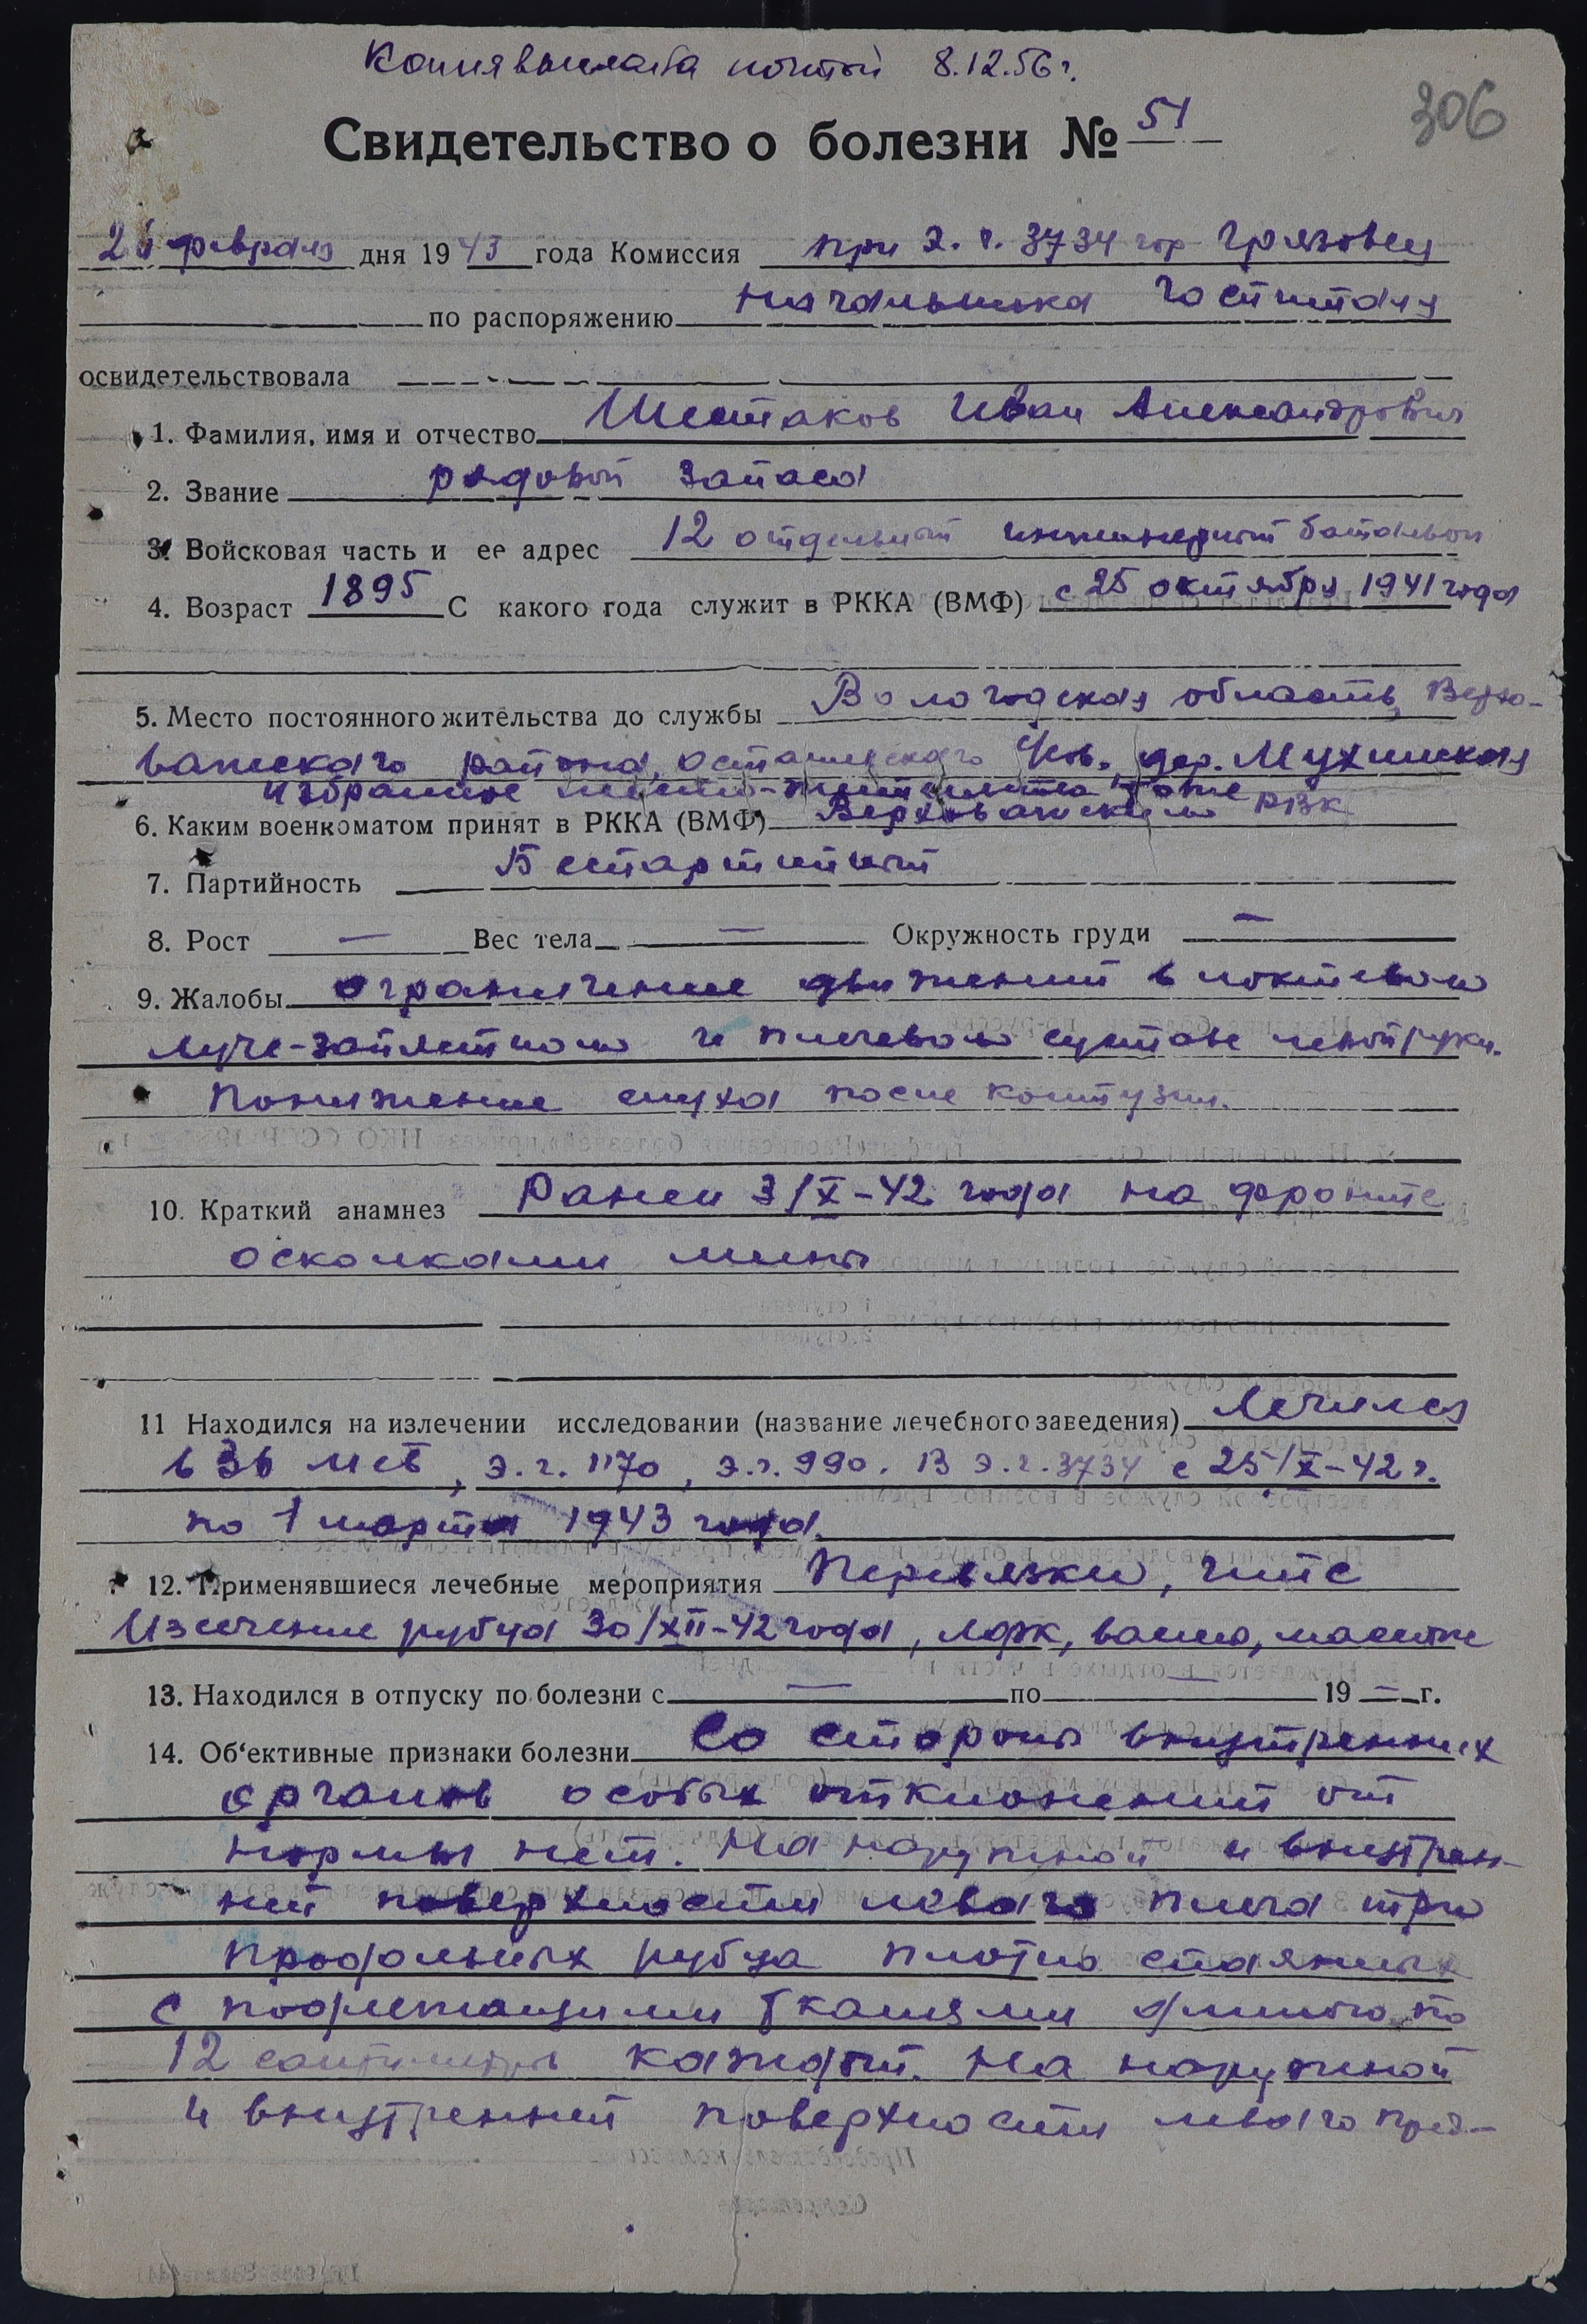 Копия выслана почтой 8.12.56 г.
306
Свидетельство о болезни № 51
26 февраля дня 1943 года Комиссия при э. г. 3734 гор Грязовец
по распоряжению начальника госпиталя
освидетельствовала
1. Фамилия, имя и отчество Шестаков Иван Александрович
2. Звание рядовой запаса
3. Войсковая часть и ее адрес 12 отдельный инженерный батальон
4. Возраст 1895 С какого года служит в РККА (ВМФ) с 25 октября 1941 года
5. Место постоянного жительства до службы Вологодская область, Верхо-
важского района, Осташевского дер. Мухинская
избранное место-жительства
6. Каким военкоматом принят в РККА (ВМФ) Верховажским РВК
7. Партийность Беспартийный
8. Рост — Вес тела — Окружность груди —
9. Жалобы ограничение движений в локтевом
луче-запястном и плечевом суставе левой руки.
Понижение слуха после контузии.
10. Краткий анамнез Ранен 3/X-42 года на фронте
осколками мины
11 Находился на излечении исследовании (название лечебного заведения) Лечился
в 36 мсб, э.г. 1170, э.г. 990. В э.г. 3734 с 25/X-42 г.
по 1 марта 1943 года.
12. Применявшиеся лечебные мероприятия Перевязки, гипс
Иссечение рубца 30/XII-42 года, лфк, ванны, массаж
13. Находился в отпуску по болезни с — по — 19 — г.
14. Об'ективные признаки болезни Со стороны внутренних
органов особых отклонений от
нормы нет. На наружной и внутрен-
ней поверхности левого плеча три
продольных рубца плотно спаянных
с подлежащими тканями длиною по
12 сантиметров каждый. На наружной
и внутренней поверхности левого пред-